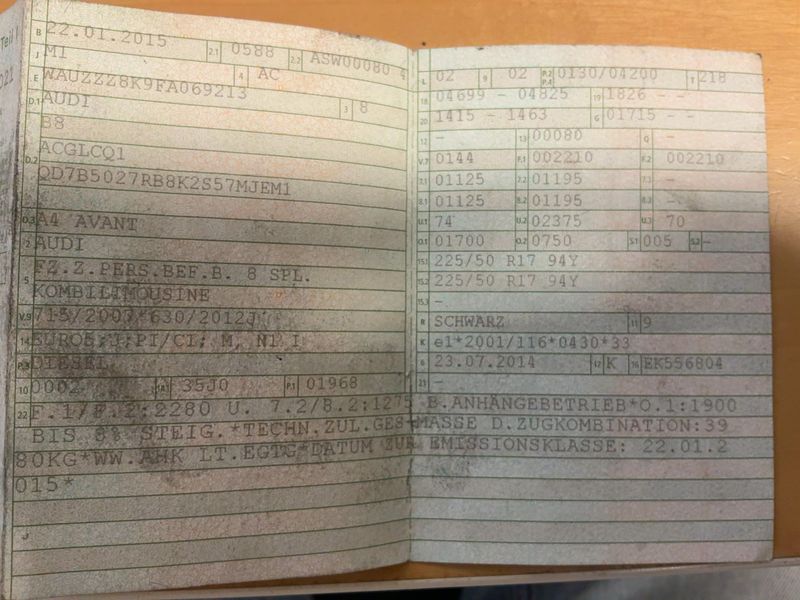 Teil I
B 22.01.2015 2.1 0588 2.2 ASW00080 4
J M1 4 AC
E WAUZZZ8K9FA069213 3 8
D.1 AUDI
B8
D.2 ACGLCQ1
QD7B5027RB8K2S57MJEM1
D.3 A4 AVANT
2 AUDI
5 FZ.Z.PERS.BEF.B. 8 SPL.
KOMBILIMOUSINE
V.9 715/2007*630/2012J
14 EURO5;J;PI/CI; M, N1 I
P.3 DIESEL
10 0002 14.1 35J0 P.1 01968
L 02 9 02 P.2 P.4 0130/04200 T 218
18 04699 - 04825 19 1826 - -
20 1415 - 1463 G 01715 - -
12 - 13 00080 Q -
V.7 0144 F.1 002210 F.2 002210
7.1 01125 7.2 01195 7.3 -
8.1 01125 8.2 01195 8.3 -
U.1 74 U.2 02375 U.3 70
O.1 01700 O.2 0750 S.1 005 S.2 -
15.1 225/50 R17 94Y
15.2 225/50 R17 94Y
15.3 -
R SCHWARZ 11 9
K e1*2001/116*0430*33
6 23.07.2014 17 K 16 EK556804
21 -
22 F.1/F.2:2280 U. 7.2/8.2:1275 B.ANHÄNGEBETRIEB*O.1:1900
BIS 8% STEIG.*TECHN.ZUL.GES-MASSE D.ZUGKOMBINATION:39
80KG*WW.AHK LT.EGTG*DATUM ZUR EMISSIONSKLASSE: 22.01.2
015*